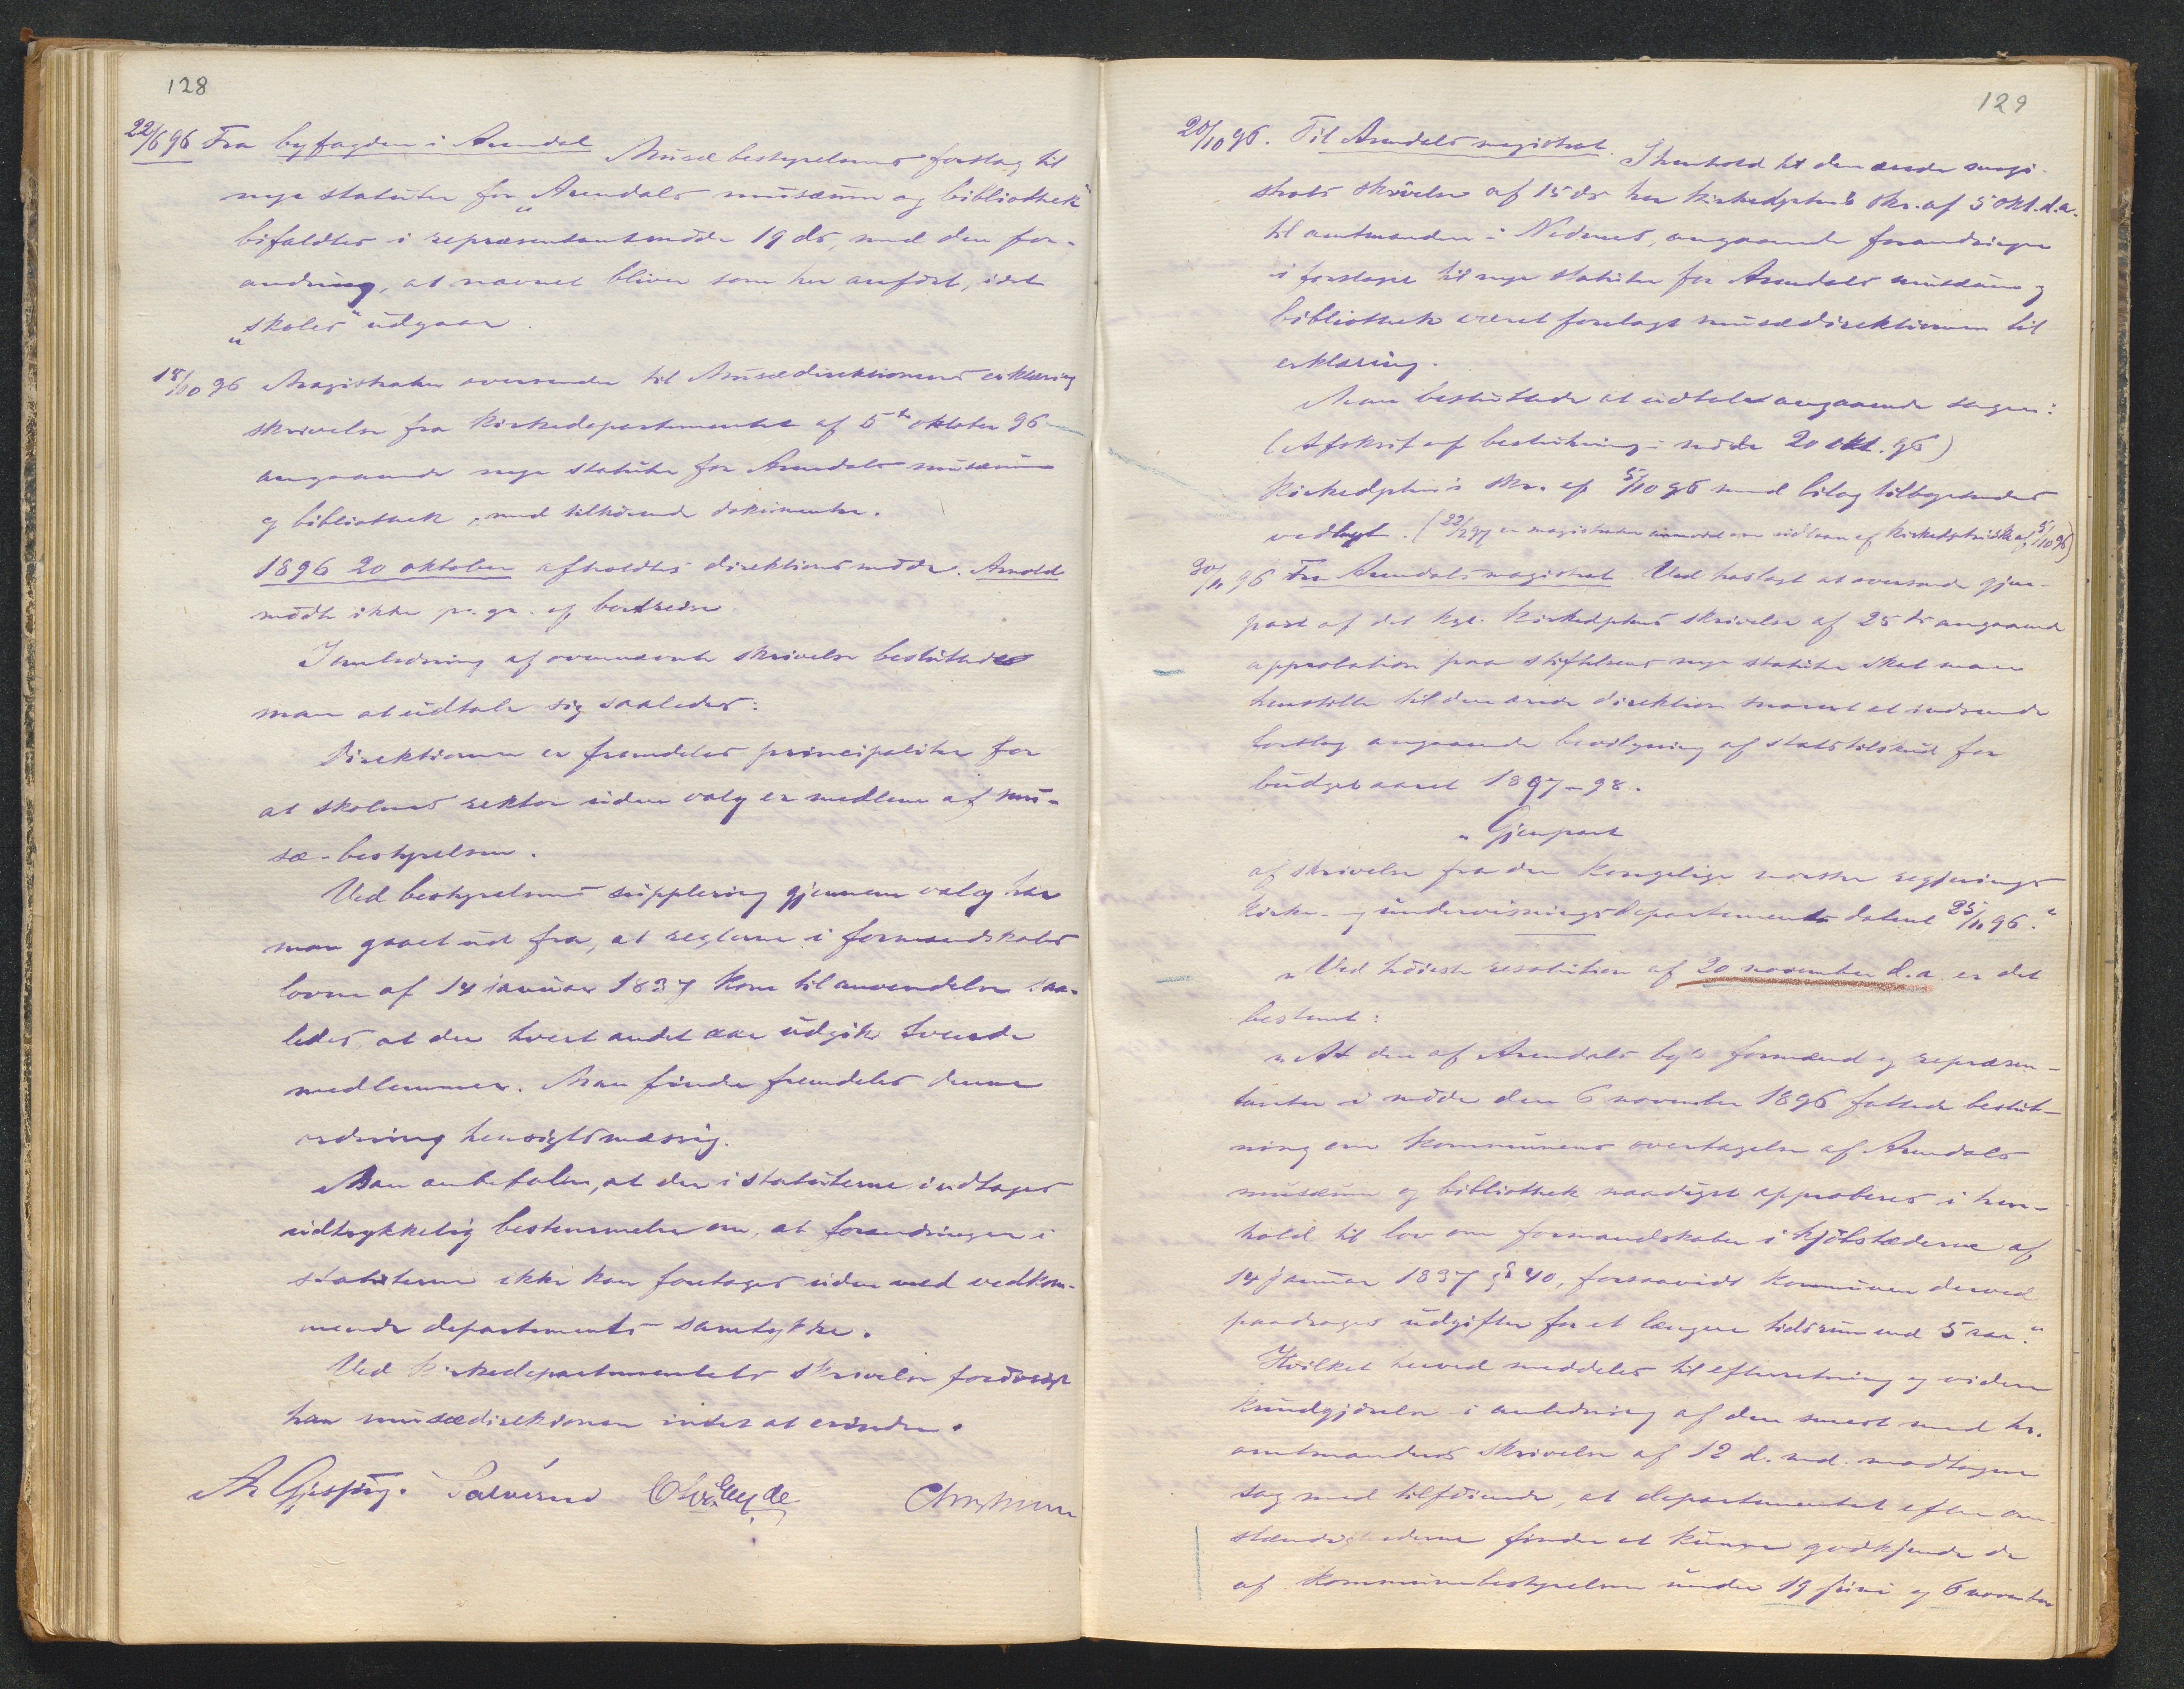 128
22/6 96 Fra byfogden i Arendal Musæbestyrelsens forslag til
nye statuter for "Arendals musæum og bibliothek"
bifaldtes i repræsentantmöde 19 ds, med den for-
andring, at navnet bliver som her anfört, idet
"skoles" udgaar.
15/10 96 Magistraten oversender til Musædirektionens erklæring
skrivelse fra Kirkedepartementet af 5te oktober 96
angaaende nye statuter for Arendals musæum
og bibliothek, med tilhörende dokumenter.
1896 20 oktober afholdtes direktionsmöde. Arnold
mödte ikke pa. gr. af bortreise.
I anledning af ovennævnte skrivelse besluttedes
man at udtale sig saaledes:
Direktionen er fremdeles principaliter for
at skolens rektor uden valg er medlem af mu-
sæ-bestyrelsen.
Ved bestyrelsens supplering gjennem valg har
man gaaet ud fra, at reglerne i formandskabs
loven af 14 januar 1837 kom til anvendelse saa-
ledes, at der hvert andet aar udgik tvende
medlemmer. Man finder fremdeles denne
ordning hensigtsmæssig.
Man anbefaler, at der i statuterne indtages
udtrykkelig bestemmelse om, at forandringer i
statuterne ikke kan foretages uden med vedkom-
mende departements samtykke.
Ved kirkedepartementets skrivelse forövrigt
har musædirektionen intet at erindre.
129
20/10 96. Til Arendals magistrat. I henhold til den ærede magi-
strats skrivelse af 15 ds har Kirkedptets skr. af 5 okt. d.a.
til amtmanden i Nedenes, angaaende forandringer
i forslaget til nye statuter for Arendals musæum og
bibliothek været forelagt musædirektionen til
erklæring.
Man besluttede at udtale angaaende sagen:
(Afskrift af beslutning i möde 20 okt. 96)
Kirkedptets skr. af 5/10 96 med bilag tilbagesendes
vedlagt. (22/2 97 er magistraten anmodet om udlaan af Kirkedptets skr. af 5/10 96)
30/11 96 Fra Arendals magistrat. Ved hoslagt at oversende gjen-
part af det kgl. Kirkedptets skrivelse af 25 ds angaaende
approbation paa stiftelsens nye statuter skal man
henstille til den ærede direktion snarest at indsende
forslag angaaende bevilgning af statstilskud for
budgetaaret 1897-98.
"Gjenpart
af skrivelse fra den Kongelige norske regjerings
Kirke- og undervisningsdepartement dateret 25/11 96."
"Ved höieste resolution af 20 november d.a. er det
bestemt:
"At den af Arendals bys formænd og repræsen-
tanter i möde den 6 november 1896 fattede beslut-
ning om kommunens overtagelse af Arendals
musæum og bibliothek naadigst approberes i hen-
hold til lov om formandskaber i kjöbstæderne af
14 januar 1837 § 40, forsaavidt kommunen derved
paadrages udgifter for et længere tidsrum end 5 aar."
Hvilket herved meddeles til efterretning og videre
kundgjörelse i anledning af den senest med hr.
amtmandens skrivelse af 12 d. md. modtagne
sag med tilföiende, at departementet efter om-
stændighederne finder at kunne godkjende de
af kommunebestyrelsen under 19 juni og 6 november